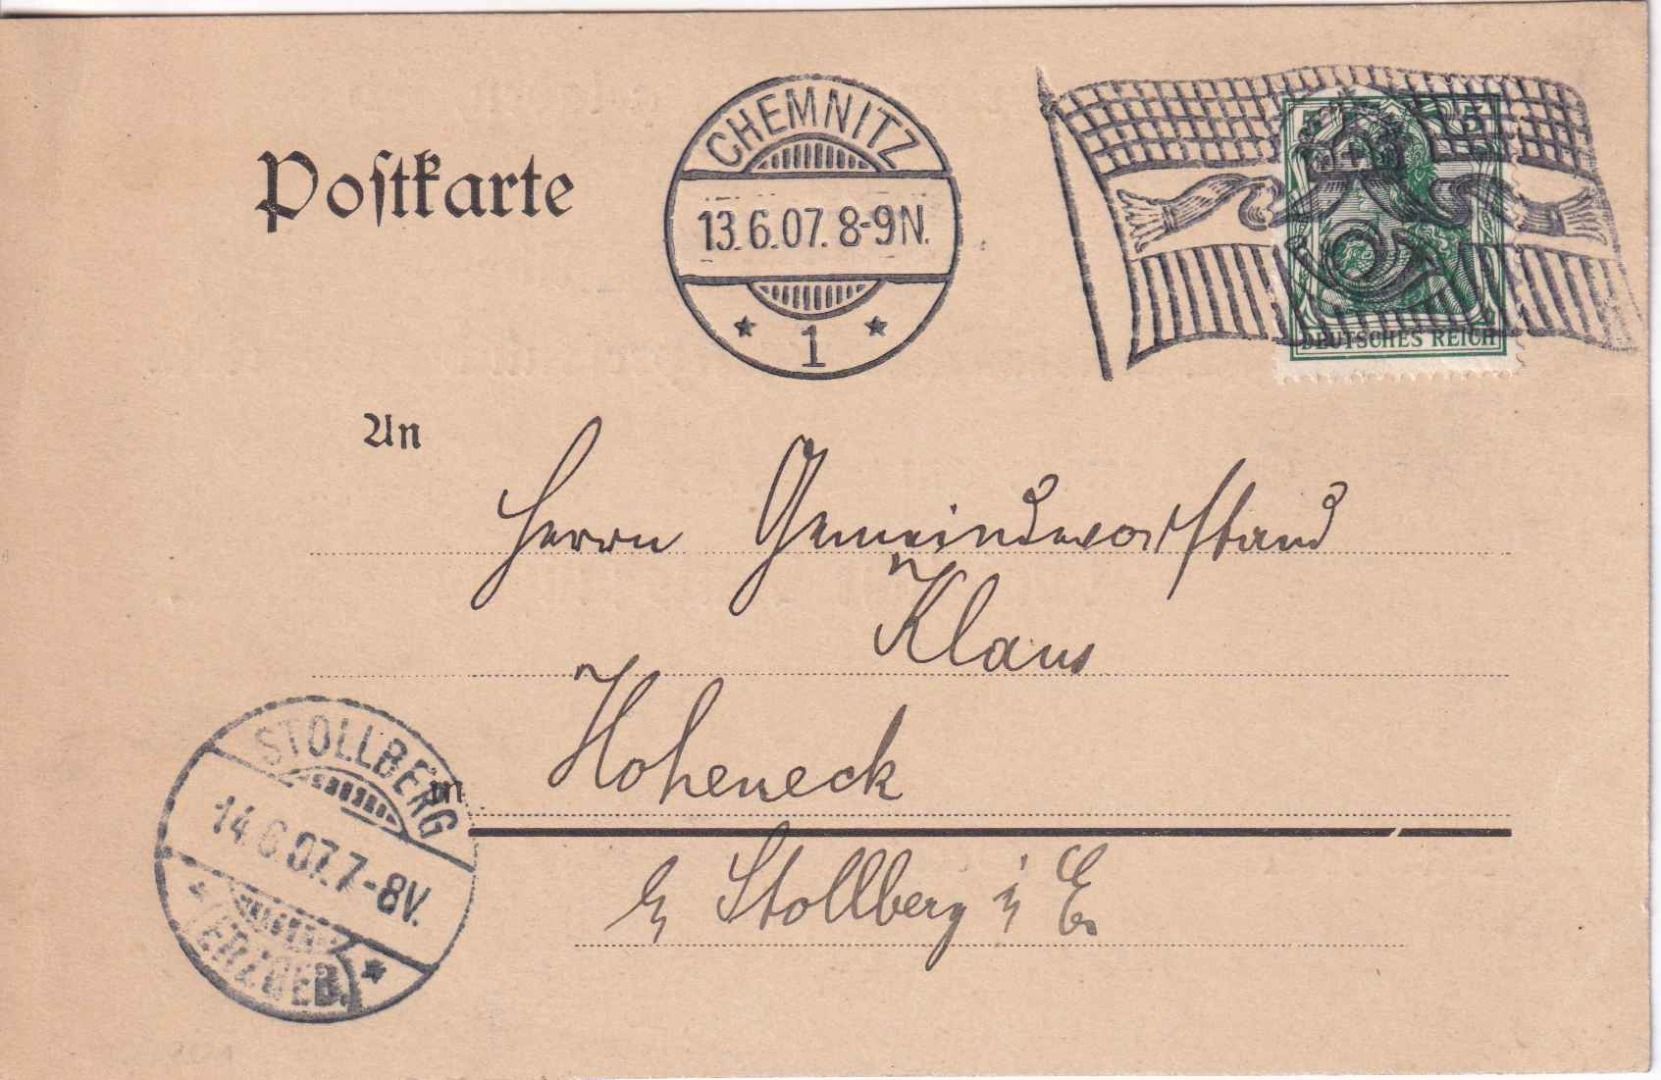 Postkarte
CHEMNITZ
13.6.07. 8-9N.
* 1 *
5 5
DEUTSCHES REICH
An
Herrn Gemeindevorstand
Klaus
Hoheneck
in
STOLLBERG
14.6.07. 7-8V.
* (ERZGEB.) *
b/ Stollberg i/ E.